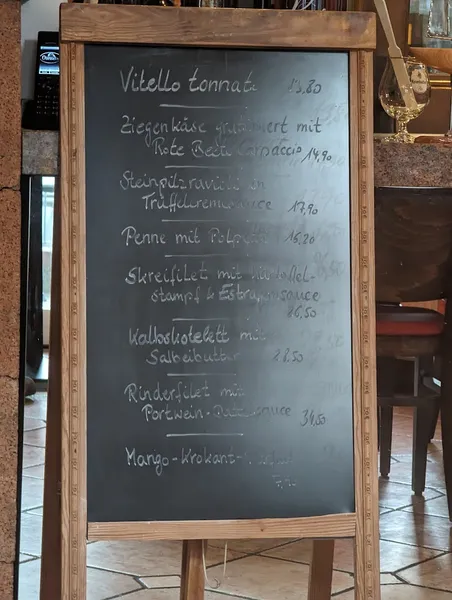 Vitello tonnato 13,80
Ziegenkäse gratiniert mit
Rote Beete Carpaccio 14,90
Steinpilzravioli in
Trüffelcremesauce 17,90
Penne mit Polpette 16,20
Skreifilet mit Kartoffel-
stampf & Estragonsauce
26,50
Kalbskotelett mit
Salbeibutter 28,50
Rinderfilet mit
Portwein-sauce 34,50
Mango-Krokant-